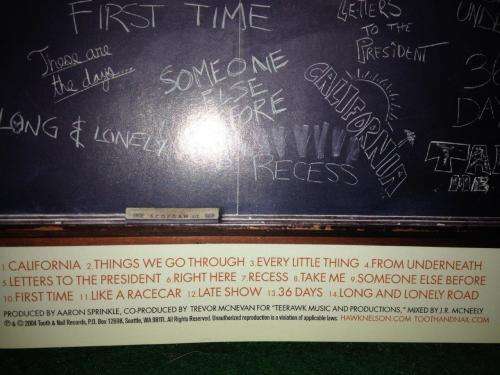 FIRST TIME
LETTERS
TO THE
PRESIDENT
These are
the days....
SOMEONE
ELSE
BEFORE
CALIFORNIA
36
DA
LONG & LONELY
RECESS
TA
ME
1. CALIFORNIA 2. THINGS WE GO THROUGH 3. EVERY LITTLE THING 4. FROM UNDERNEATH
5. LETTERS TO THE PRESIDENT 6. RIGHT HERE 7. RECESS 8. TAKE ME 9. SOMEONE ELSE BEFORE
10. FIRST TIME 11. LIKE A RACECAR 12. LATE SHOW 13. 36 DAYS 14. LONG AND LONELY ROAD
PRODUCED BY AARON SPRINKLE, CO-PRODUCED BY TREVOR MCNEVAN FOR "TEERAWK MUSIC AND PRODUCTIONS," MIXED BY J.R. MCNEELY
℗ & © 2004 Tooth & Nail Records, P.O. Box 12698, Seattle, WA 98111. All Rights Reserved. Unauthorized reproduction is a violation of applicable laws. HAWKNELSON.COM TOOTHANDNAIL.COM